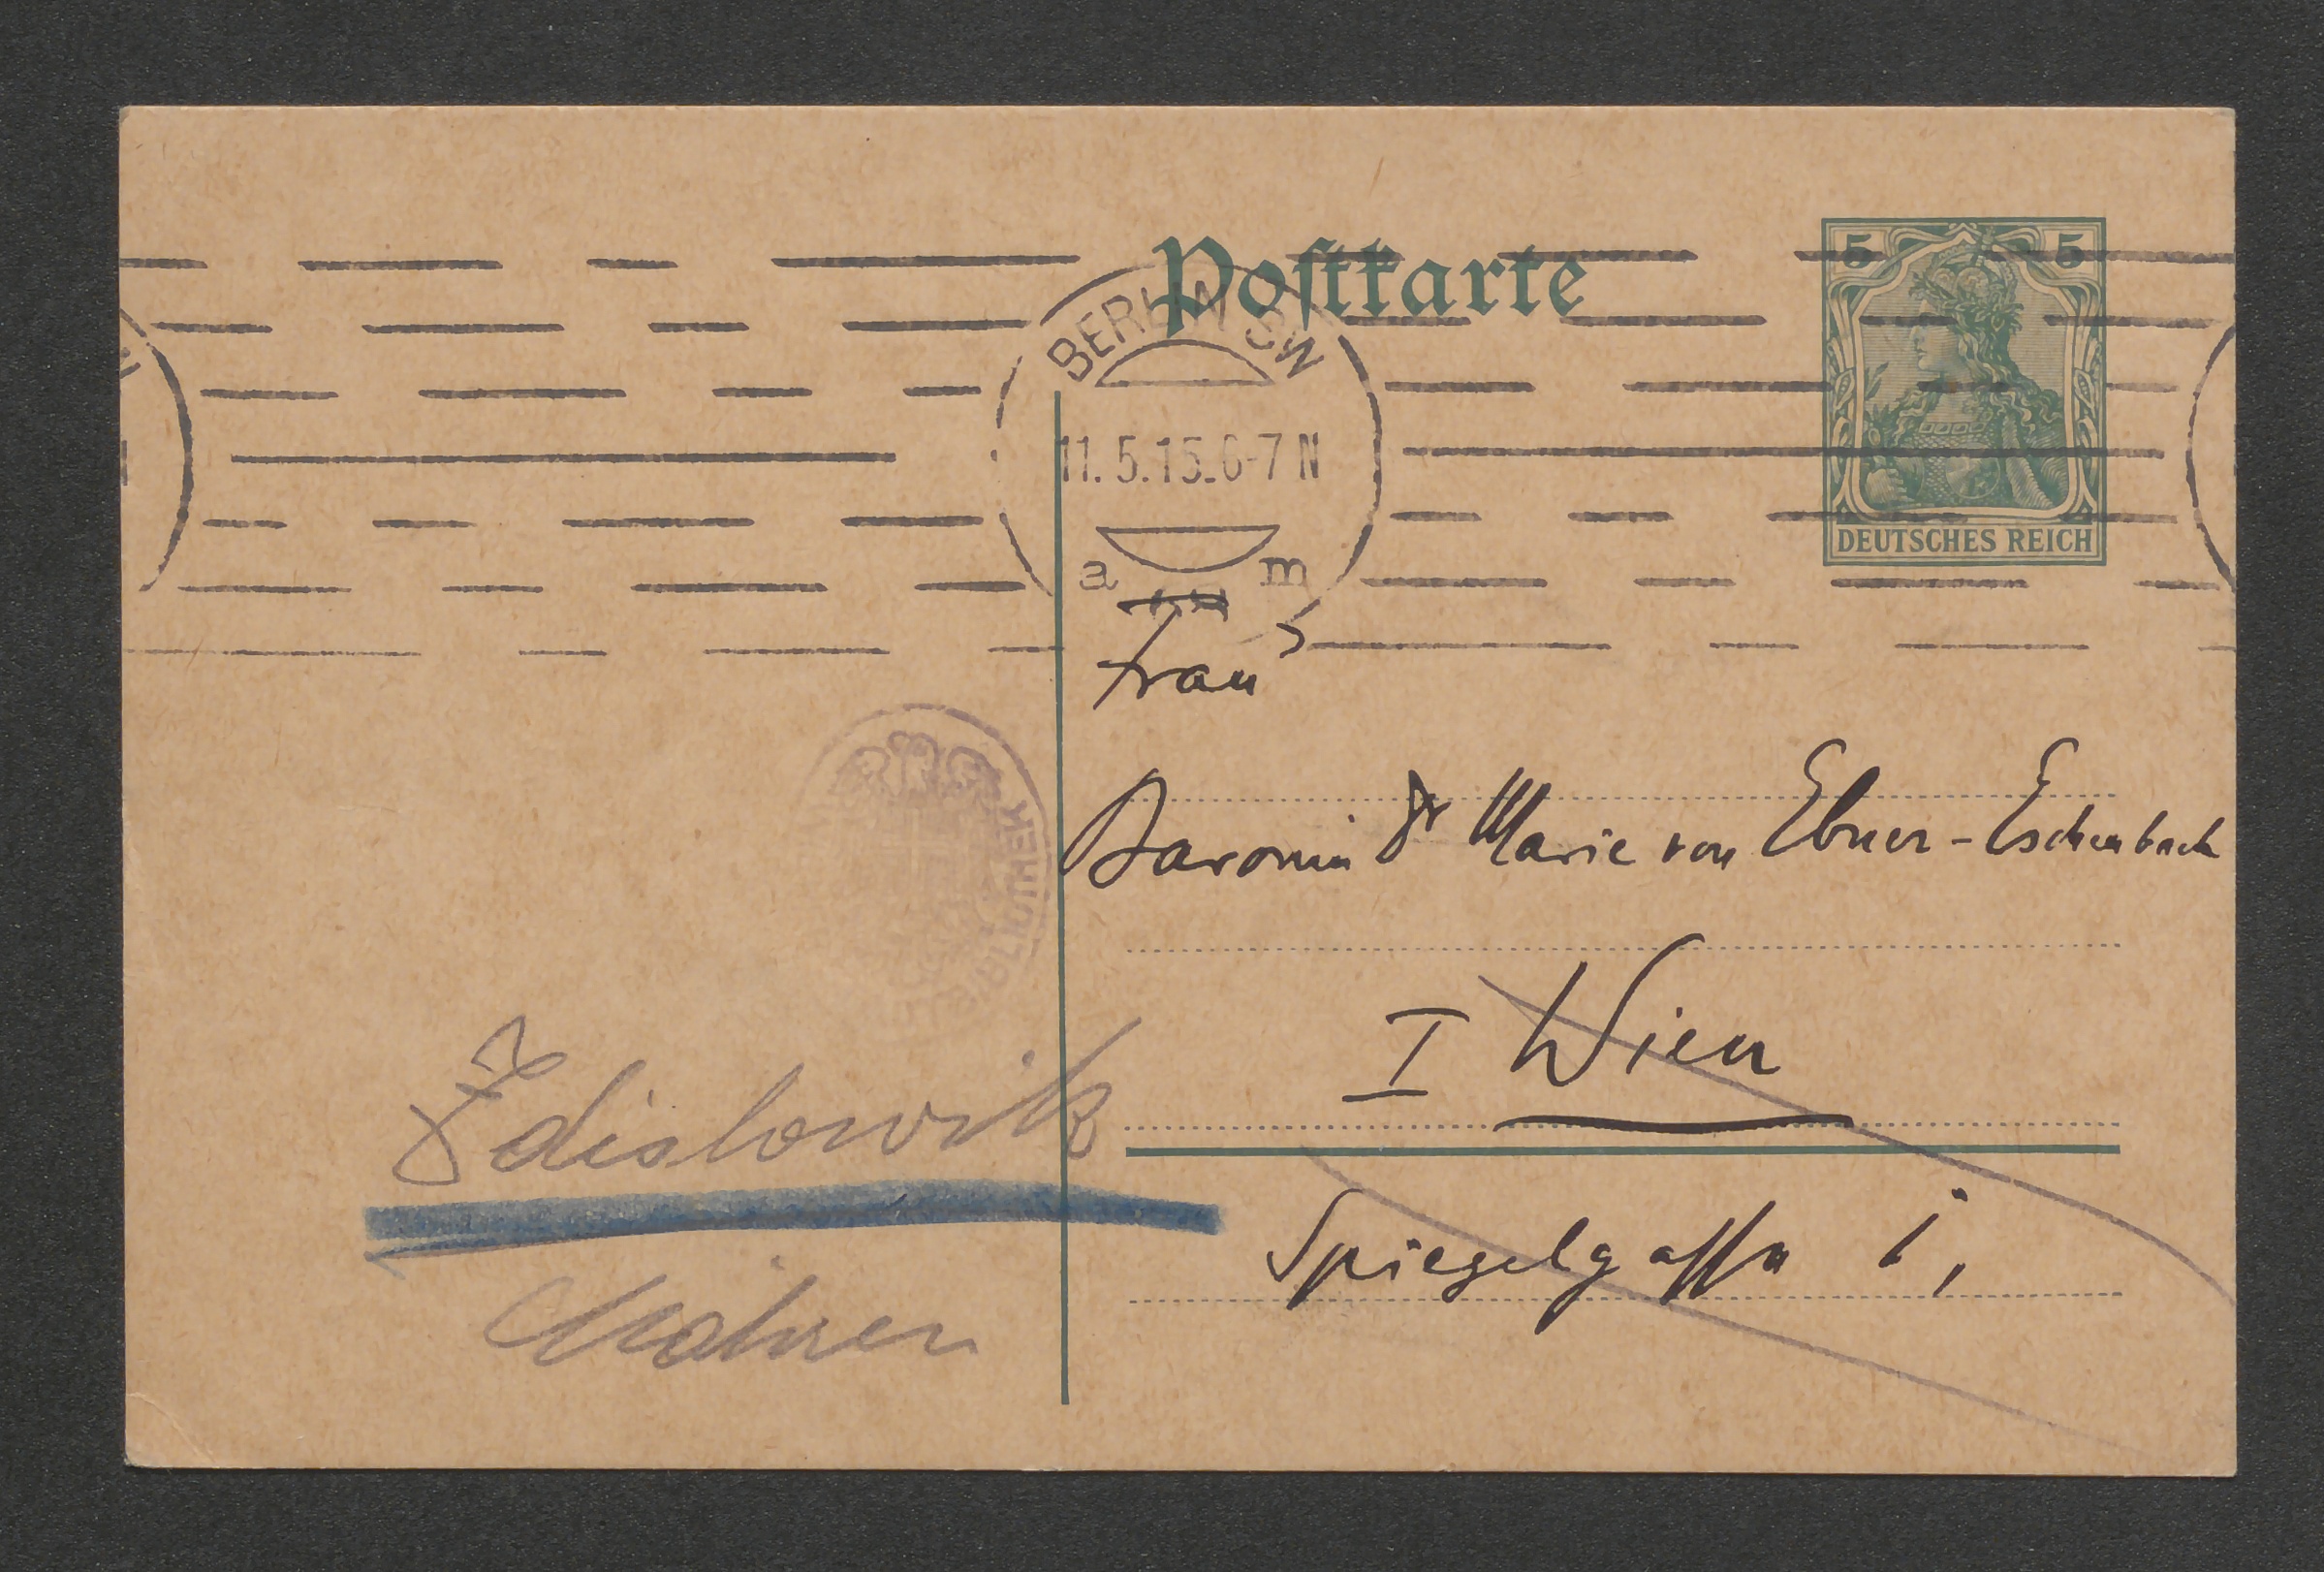 Postkarte
5 5
DEUTSCHES REICH
BERLIN SW
11.5.15.6-7 N
a m
Frau
Baronin Dr Marie von Ebner-Eschenbach
I Wien
Spiegelgasse 1,
Zdislowitz
Mähren